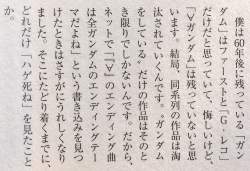 僕は60年後に残っている「ガン
ダム」はファーストと「Gレコ」
だけだと思っていて、悔しいけど、
「∀ガンダム」は残っていないと思
います。結局、同系列の作品は淘
汰されていくんです。"ガンダム
をしている"だけの作品はそのと
き限りでしかないんです。だから、
ネットで「『∀』のエンディング曲
は全ガンダムのエンディングテー
マだよね」という書き込みを見つ
けたときはさすがにうれしくなり
ました。そこにたどり着くまでに、
どれだけ「ハゲ死ね」を見たこと
か。